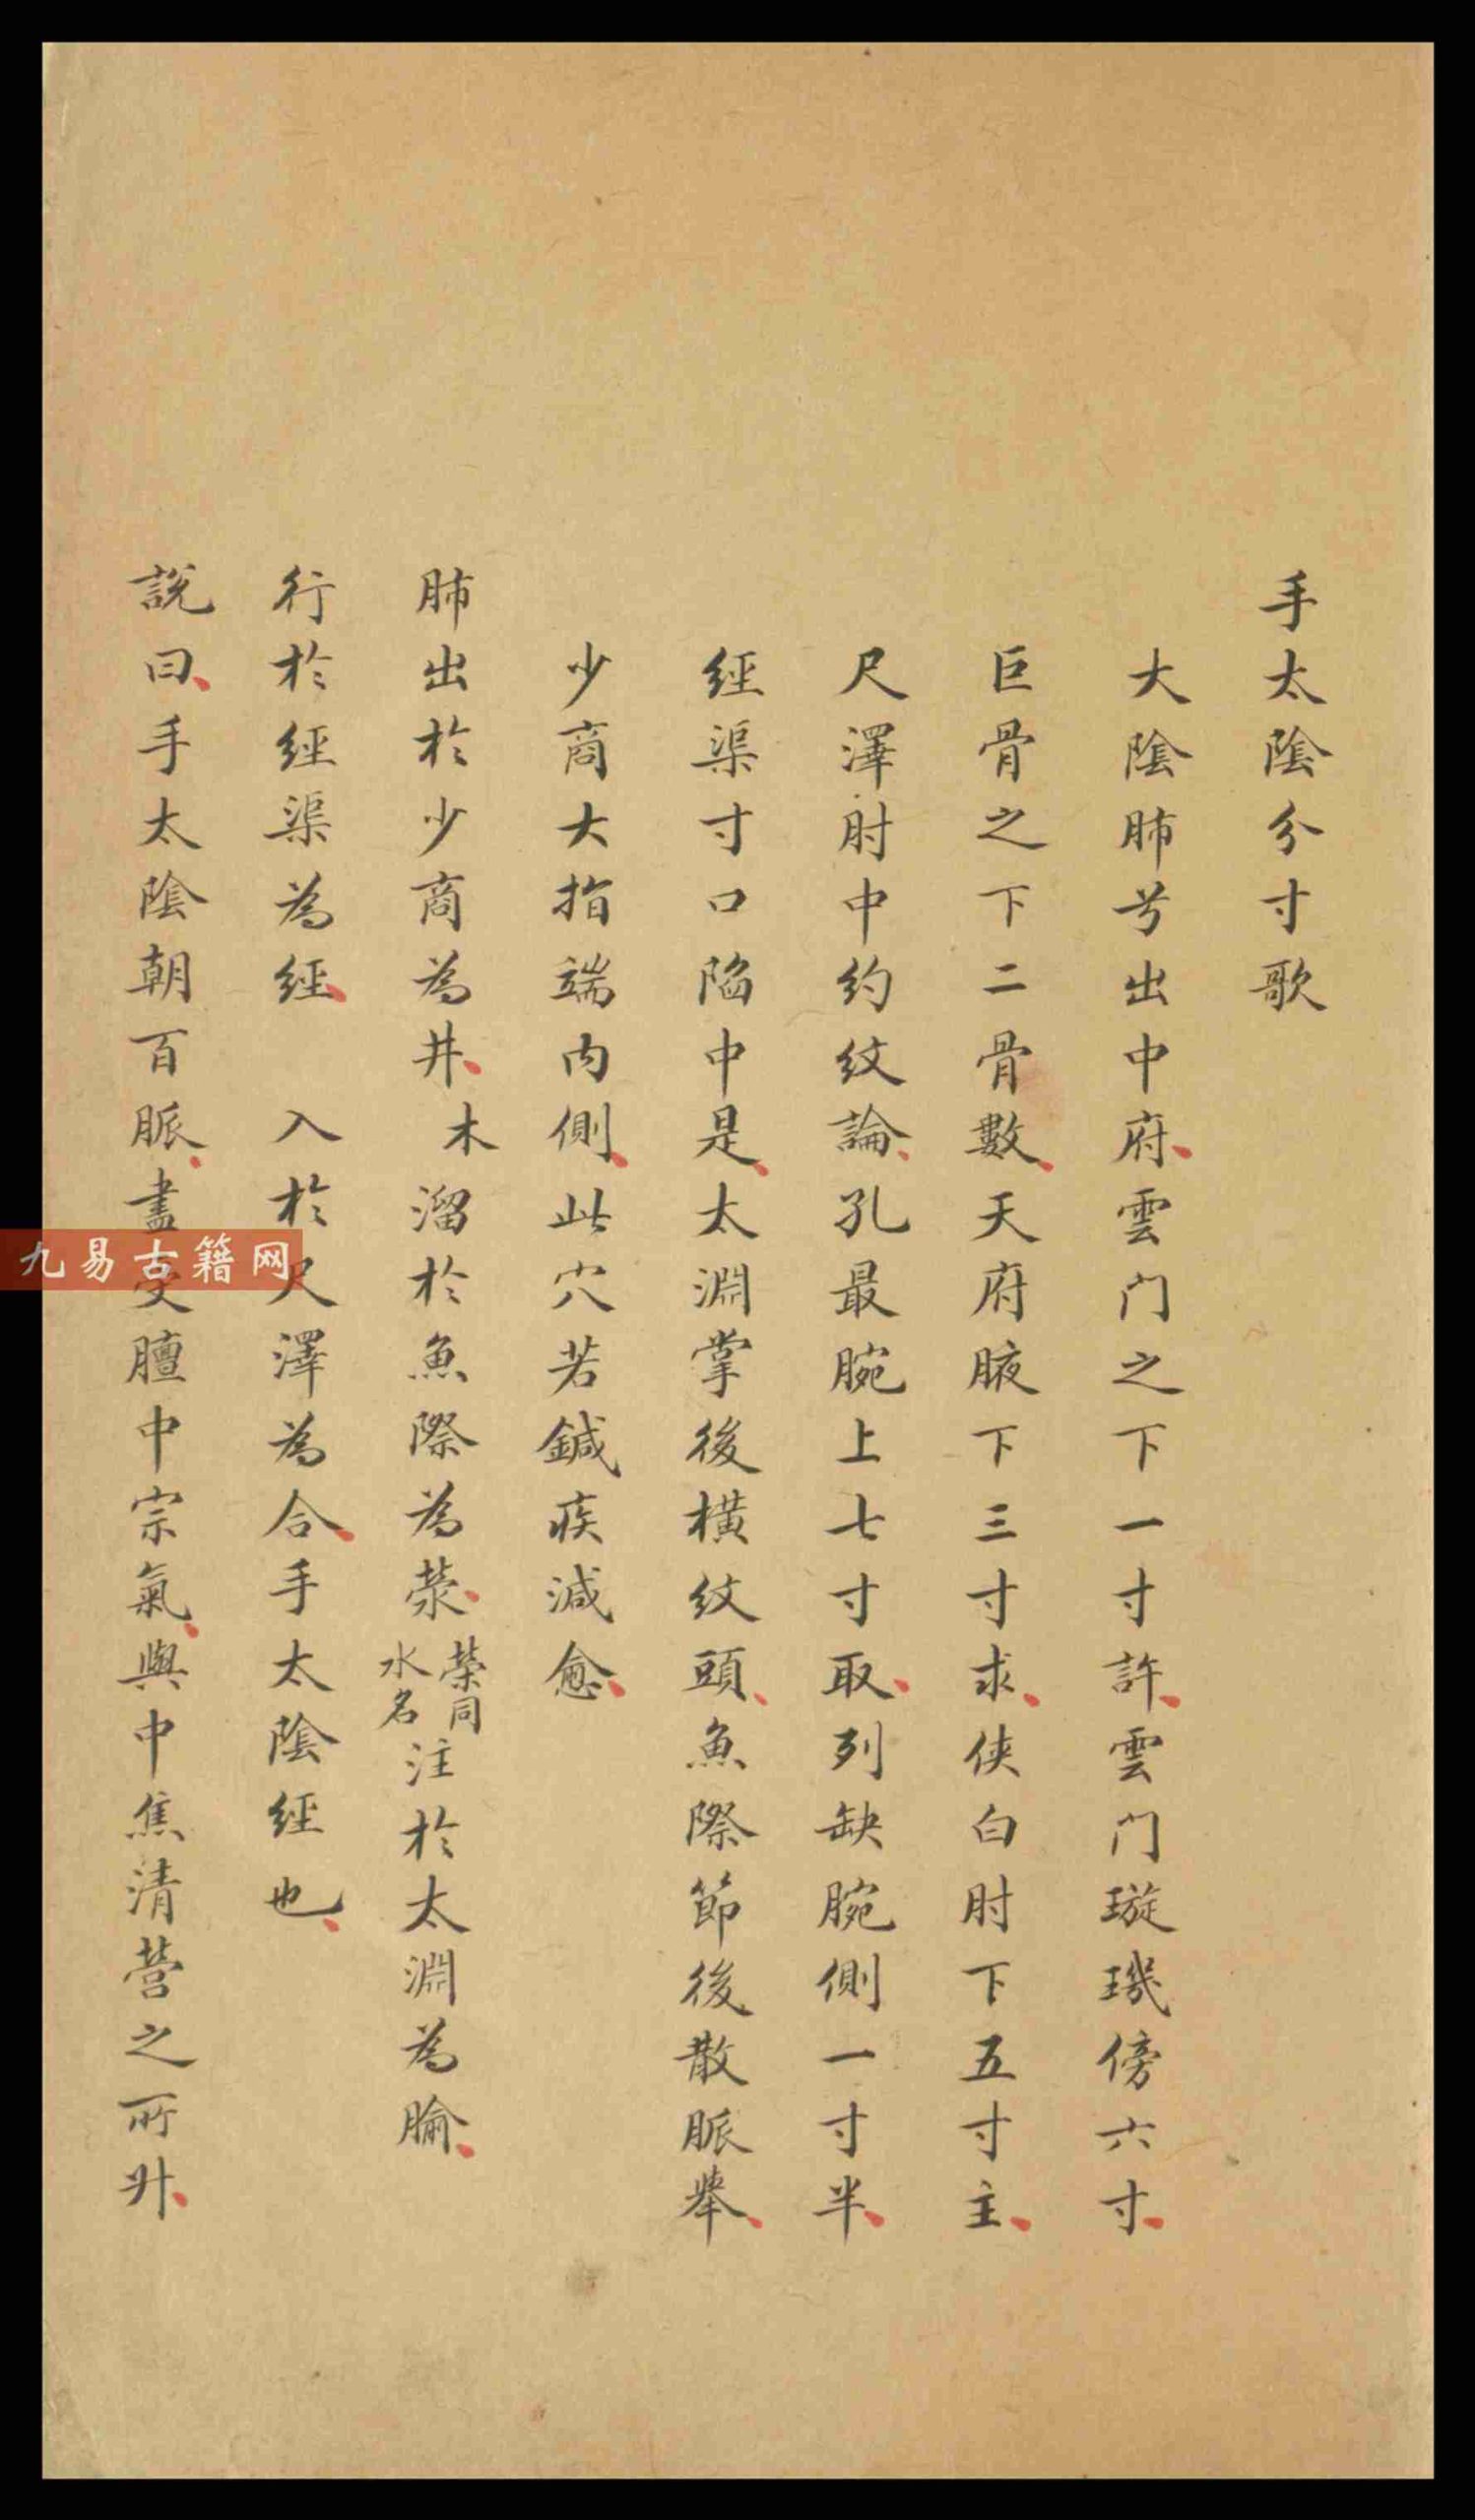 手太陰分寸歌
大陰肺兮出中府、雲门之下一寸許、雲门璇璣傍六寸、
巨骨之下二骨數、天府腋下三寸求、侠白肘下五寸主、
尺澤肘中約紋論、孔最腕上七寸取、列缺腕側一寸半、
經渠寸口陷中是、太淵掌後横紋頭、魚際節後散脈舉、
少商大指端内側、此穴若鍼疾減愈、
肺出於少商為井、木溜於魚際為滎、滎同水名注於太淵為腧、
行於經渠為經、入於尺澤為合、手太陰經也、
說曰、手太陰朝百脈、盡受膻中宗氣、與中焦清營之所升、
九易古籍网